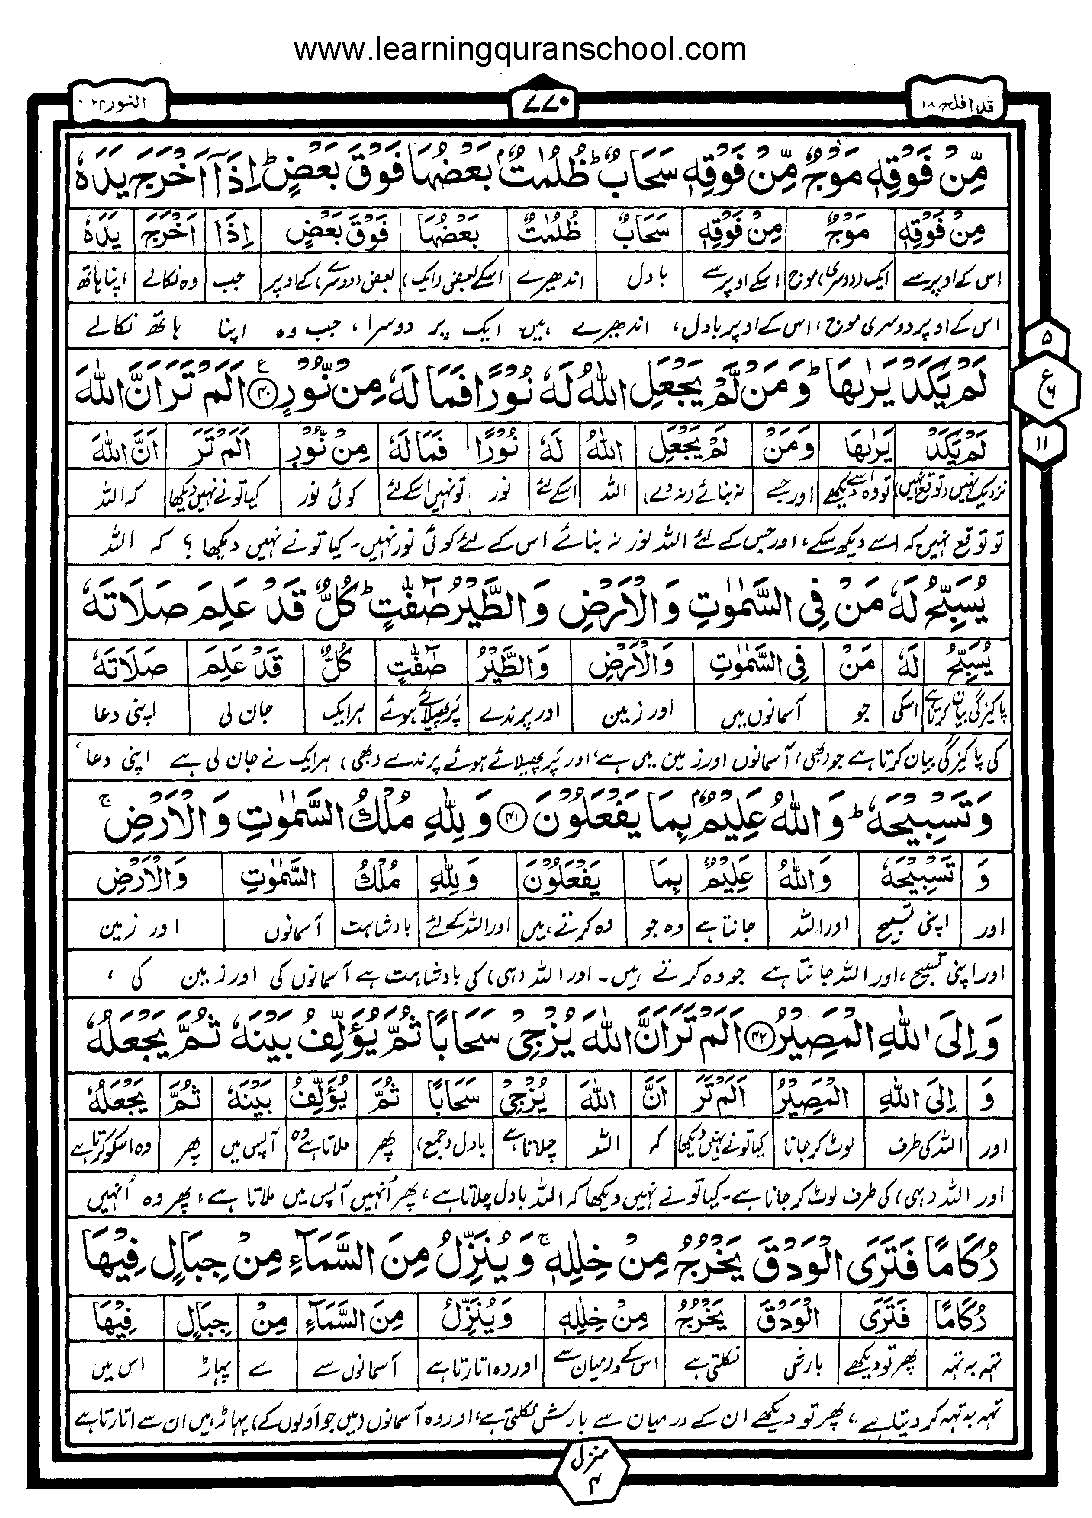 www.learningquranschool.com
قد افلح ١٨
٧٧٠
النور ٢٤
مِّنْ فَوْقِهٖ مَوْجٌ مِّنْ فَوْقِهٖ سَحَابٌ ؕ ظُلُمٰتٌۢ بَعْضُهَا فَوْقَ بَعْضٍ ؕ اِذَاۤ اَخْرَجَ یَدَهٗ
مِنْ فَوْقِهٖ مَوْجٌ مِنْ فَوْقِهٖ سَحَابٌ ظُلُمٰتٌ بَعْضُهَا فَوْقَ بَعْضٍ اِذَا اَخْرَجَ یَدَهٗ
اس کے اوپر سے ایک (دوسری) موج اسکے اوپر سے بادل اندھیرے اسکے بعض (ایک) بعض (دوسرے) کے اوپر جب وہ نکالے اپنا ہاتھ
اس کے اوپر دوسری موج، اس کے اوپر بادل، اندھیرے ہیں ایک پر دوسرا، جب وہ اپنا ہاتھ نکالے
۵
ع
۶
۱۱
لَمْ یَكَدْ یَرٰىهَا ؕ وَ مَنْ لَّمْ یَجْعَلِ اللّٰهُ لَهٗ نُوْرًا فَمَا لَهٗ مِنْ نُّوْرٍ ﴿۴۰﴾ اَلَمْ تَرَ اَنَّ اللّٰهَ
لَمْ یَكَدْ یَرٰىهَا وَمَنْ لَمْ یَجْعَلِ اللّٰهُ لَهٗ نُوْرًا فَمَا لَهٗ مِنْ نُّوْرٍ اَلَمْ تَرَ اَنَّ اللّٰهَ
نزدیک نہیں (توقع نہیں) تو وہ اسے دیکھے اور جسے نہ بنائے (نہ دے) اللہ اسکے لئے نور تو نہیں اسکے لئے کوئی نور کیا تونے نہیں دیکھا کہ اللہ
تو توقع نہیں کہ اسے دیکھ سکے، اور جس کے لئے اللہ نور نہ بنائے اس کے لئے کوئی نور نہیں۔ کیا تونے نہیں دیکھا؟ کہ اللہ
یُسَبِّحُ لَهٗ مَنْ فِی السَّمٰوٰتِ وَ الْاَرْضِ وَ الطَّیْرُ صٰٓفّٰتٍ ؕ كُلٌّ قَدْ عَلِمَ صَلَاتَهٗ
یُسَبِّحُ لَهٗ مَنْ فِی السَّمٰوٰتِ وَالْاَرْضِ وَالطَّیْرُ صٰٓفّٰتٍ كُلٌّ قَدْ عَلِمَ صَلَاتَهٗ
پاکیزگی بیان کرتا ہے اسکی جو آسمانوں میں اور زمین اور پرندے پر پھیلائے ہوئے ہر ایک جان لی اپنی دعا
کی پاکیزگی بیان کرتا ہے جو (بھی) آسمانوں اور زمین میں ہے، اور پر پھیلائے ہوئے پرندے (بھی) ہر ایک نے جان لی ہے اپنی دعا
وَ تَسْبِیْحَهٗ ؕ وَ اللّٰهُ عَلِیْمٌۢ بِمَا یَفْعَلُوْنَ ﴿۴۱﴾ وَ لِلّٰهِ مُلْكُ السَّمٰوٰتِ وَ الْاَرْضِ ۚ
وَ تَسْبِیْحَهٗ وَاللّٰهُ عَلِیْمٌ بِمَا یَفْعَلُوْنَ وَلِلّٰهِ مُلْكُ السَّمٰوٰتِ وَالْاَرْضِ
اور اپنی تسبیح اور اللہ جانتا ہے وہ جو وہ کرتے ہیں اور اللہ کے لئے بادشاہت آسمانوں اور زمین
اور اپنی تسبیح، اور اللہ جانتا ہے جو وہ کرتے ہیں۔ اور اللہ (ہی) کی بادشاہت ہے آسمانوں کی اور زمین کی،
وَ اِلَی اللّٰهِ الْمَصِیْرُ ﴿۴۲﴾ اَلَمْ تَرَ اَنَّ اللّٰهَ یُزْجِیْ سَحَابًا ثُمَّ یُؤَلِّفُ بَیْنَهٗ ثُمَّ یَجْعَلُهٗ
وَ اِلَی اللّٰهِ الْمَصِیْرُ اَلَمْ تَرَ اَنَّ اللّٰهَ یُزْجِیْ سَحَابًا ثُمَّ یُؤَلِّفُ بَیْنَهٗ ثُمَّ یَجْعَلُهٗ
اور اللہ کی طرف لوٹ کر جانا کیا تونے نہیں دیکھا کہ اللہ چلاتا ہے بادل (جمع) پھر ملاتا ہے وہ آپس میں پھر وہ اسکو کرتا ہے
اور اللہ (ہی) کی طرف لوٹ کر جانا ہے۔ کیا تونے نہیں دیکھا کہ اللہ بادل چلاتا ہے، پھر اُنہیں آپس میں ملاتا ہے، پھر وہ اُنہیں
رُكَامًا فَتَرَی الْوَدْقَ یَخْرُجُ مِنْ خِلٰلِهٖ ۚ وَ یُنَزِّلُ مِنَ السَّمَآءِ مِنْ جِبَالٍ فِیْهَا
رُكَامًا فَتَرَی الْوَدْقَ یَخْرُجُ مِنْ خِلٰلِهٖ وَیُنَزِّلُ مِنَ السَّمَآءِ مِنْ جِبَالٍ فِیْهَا
تہہ بہ تہہ پھر تو دیکھے بارش نکلتی ہے اس کے درمیان سے اور وہ اتارتا ہے آسمانوں سے سے پہاڑ اس میں
تہہ بہ تہہ کر دیتا ہے، پھر تو دیکھے ان کے درمیان سے بارش نکلتی ہے، اور وہ آسمانوں (میں جو اولوں کے) پہاڑ ہیں ان سے اتارتا ہے
منزل
۴